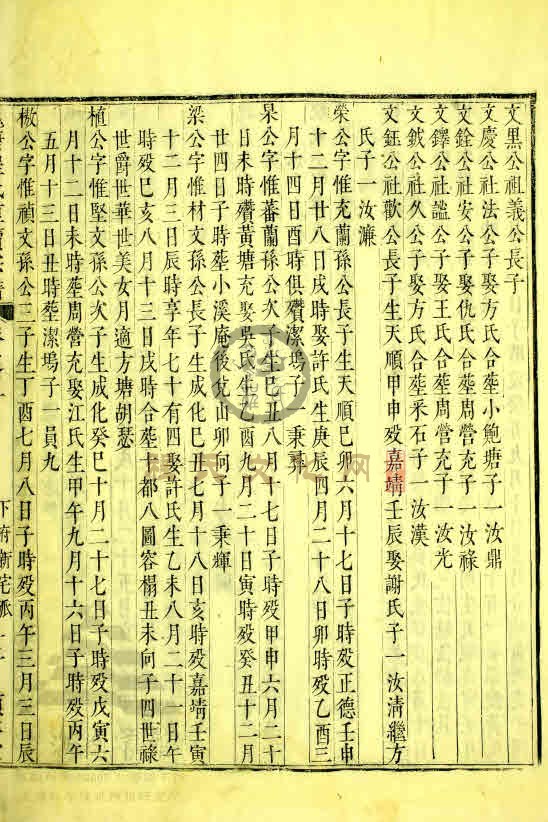 文黑公祖義公長子
文慶公社法公子娶方氏合塟小鮑塘子一汝鼎
文銓公社安公子娶仇氏合塟周營充子一汝祿
文鐸公社謐公子娶王氏合塟周營充子一汝光
文鉞公社久公子娶方氏合塟釆石子一汝漢
文鈺公社歡公長子生天順甲申殁嘉靖壬辰娶謝氏子一汝清繼方
氏子一汝濂
榮公字惟充蘭孫公長子生天順巳卯六月十七日子時殁正德壬申
十二月廿八日戌時娶許氏生庚辰四月二十八日卯時殁乙酉三
月十四日酉時俱殯潔塢子一秉彛
杲公字惟蕃蘭孫公次子生巳丑八月十七日子時殁甲申六月二十
日未時殯黃塘充娶吳氏生乙酉九月二十日寅時殁癸丑十二月
廿四日子時塟小溪庵後艮山卯向子一秉輝
梁公字惟材文孫公長子生成化巳丑七月十八日亥時殁嘉靖壬寅
十二月三日辰時享年七十有四娶許氏生乙未八月二十一日午
時殁巳亥八月十三日戌時合塟十都八圖容榻丑未向子四世祿
世爵世華世美女月適方塘胡瑟
植公字惟堅文孫公次子生成化癸巳十月二十七日子時殁戊寅六
月十二日未時塟周營充娶江氏生甲午九月十六日子時殁丙午
五月十三日丑時塟潔塢子一員九
楸公字惟禎文孫公三子生丁酉七月八日子時殁丙午三月三日辰
下府新宅派